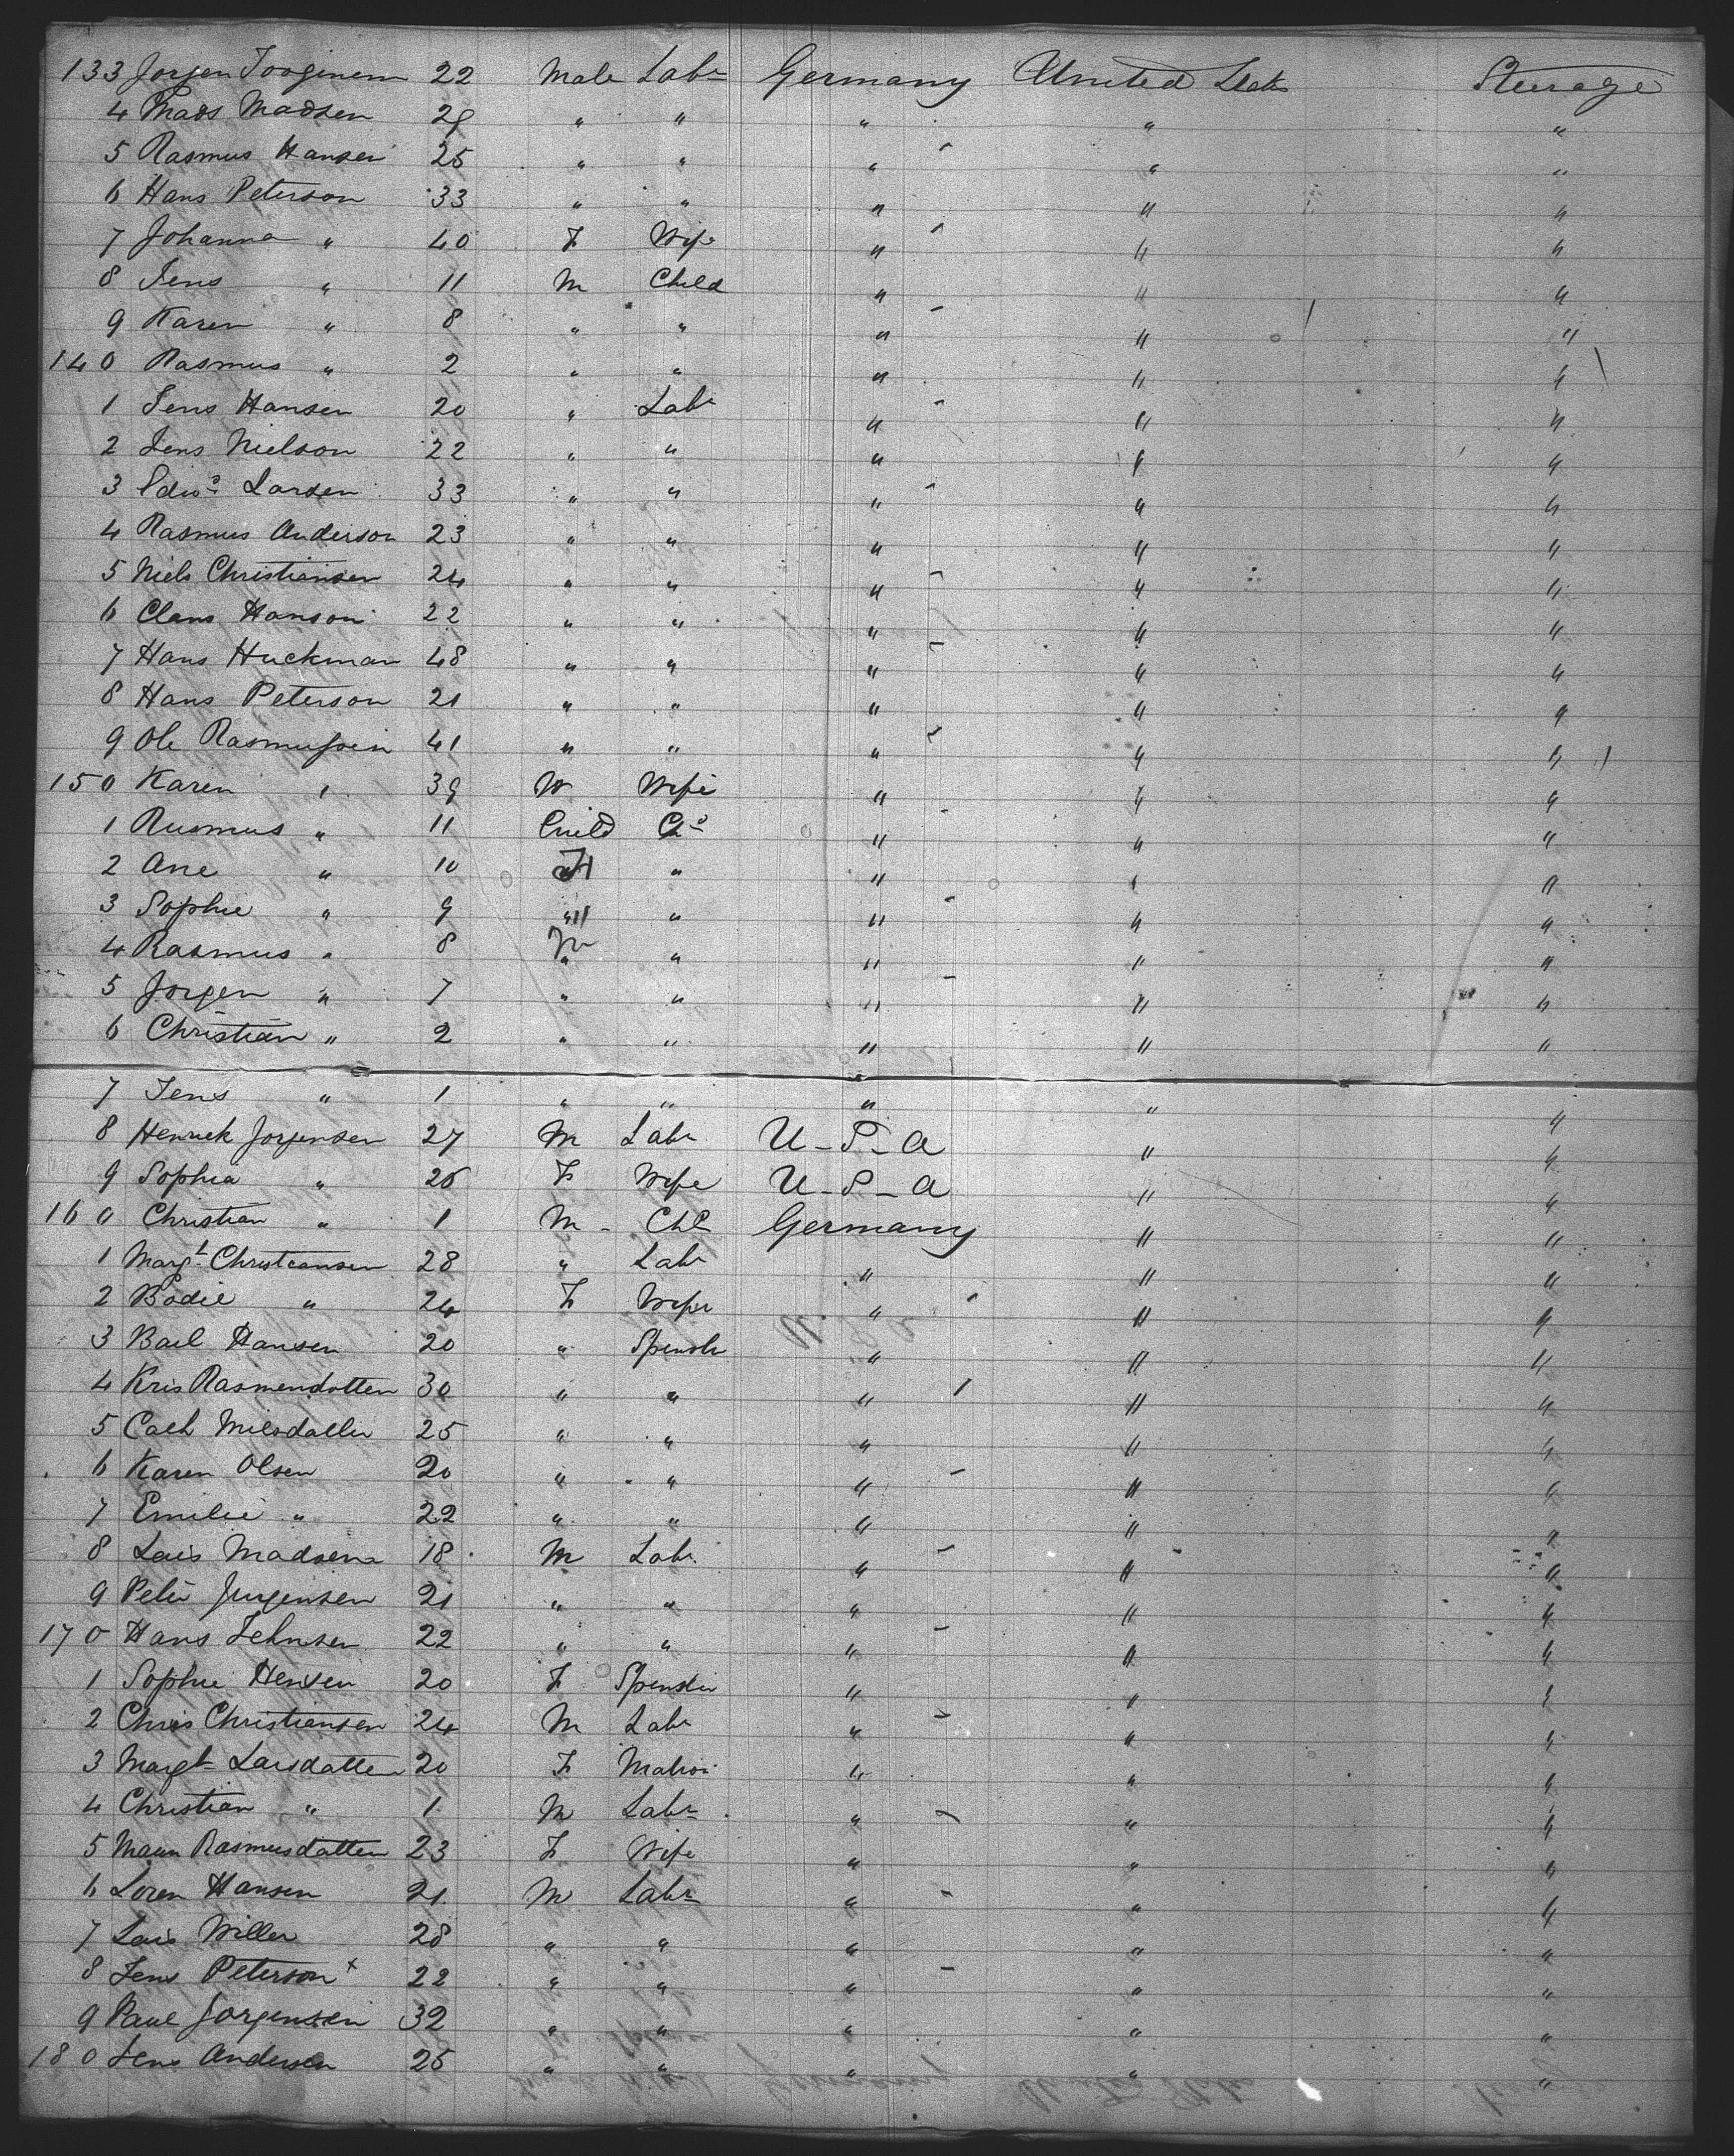 133 Jorgen Jooginem 22 Male Labr Germany United States Steerage
4 Mads Madsen 29 " " " " "
5 Rasmus Hansen 25 " " " " "
6 Hans Peterson 33 " " " " "
7 Johanna " 40 F Wife " " "
8 Jens " 11 M Child " " "
9 Karen " 8 " " " " "
140 Rasmus " 2 " " " " "
1 Jens Hansen 20 " Labr " " "
2 Jens Nielson 22 " " " " "
3 Edwd Larsen 33 " " " " "
4 Rasmus Anderson 23 " " " " "
5 Niels Christiansen 24 " " " " "
6 Claus Hanson 22 " " " " "
7 Hans Huckman 48 " " " " "
8 Hans Peterson 21 " " " " "
9 Ole Rasmussen 41 " " " " "
150 Karen " 39 W Wife " " "
1 Rusmus " 11 Child Cd " " "
2 Ane " 10 F " " " "
3 Sophie " 9 " " " " "
4 Rasmus " 8 M " " " "
5 Jorgen " 7 " " " " "
6 Christian " 2 " " " " "
7 Jens " 1 " " " " "
8 Henrick Jorgensen 27 M Labr U-S-A " "
9 Sophia " 26 F Wife U-S-A " "
160 Christian " 1 M Chd Germany " "
1 Margt Christiansen 28 " Labr " " "
2 Bodil " 24 F Wife " " "
3 Bail Hansen 20 " Spinstr " " "
4 Kris Rasmendotten 30 " " " " "
5 Cath Nielsdatter 25 " " " " "
6 Karen Olsen 20 " " " " "
7 Emilie " 22 " " " " "
8 Lars Madsen 18 M Labr " " "
9 Peter Jurgensen 21 " " " " "
170 Hans 22 " " " " "
1 Sophie Hensen 20 F Spinster " " "
2 Chris Christiansen 24 M Labr " " "
3 Margt Larsdatten 20 F Matron " " "
4 Christian " 1 M Labr " " "
5 Maun Rasmusdatten 23 F Wife " " "
6 Loren Hansen 21 M Labr " " "
7 Lars Willer 28 " " " " "
8 Jens Peterson x 22 " " " " "
9 Paul Jorgensen 32 " " " " "
180 Jens Andersen 25 " " " " "